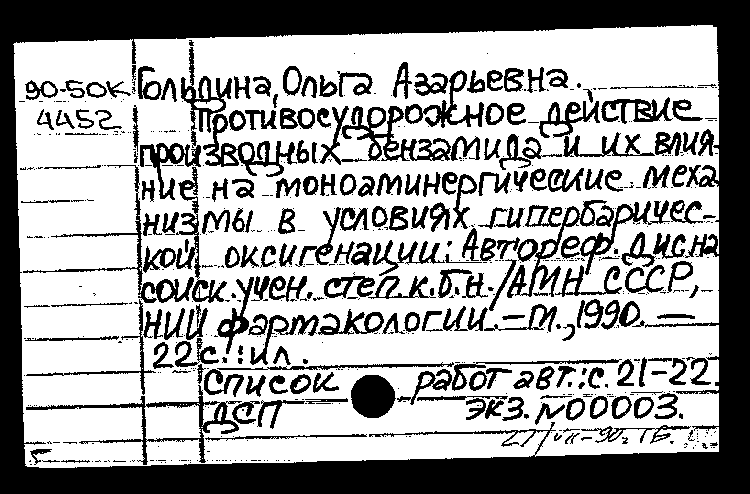 90-50К Гольдина, Ольга Азарьевна.
4452 Противосудорожное действие
производных бензамида и их влия-
ние на моноаминергические меха
низмы в условиях гипербаричес-
кой оксигенации: Автореф. дис на
соиск. учен. степ. к.б.н. / АМН СССР,
НИИ фармакологии. – М., 1990. —
22 с.: ил.
Список работ авт.: с. 21-22.
ДСП экз. N00003.
27/VII-90г.